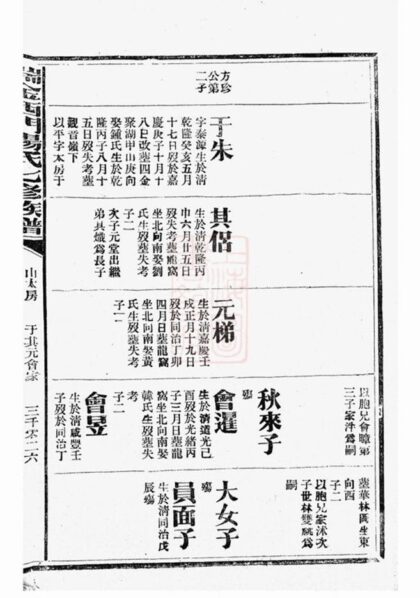 方珍
公第
二子
于朱
字泰源生於清
乾隆癸亥五月
十七日歿於嘉
慶庚子十月十
八日改塟四金
聚湖甲山庚向
娶鍾氏生於乾
隆丙子八月十
五日歿失考塟
觀音嶺下
以平字太房于
其侶
生於清乾隆丙
申六月廿五日
歿失考塟瞧窩
坐北向南娶劉
氏生歿塟失考
子二
次子元堂出繼
弟其熾爲長子
元梯
生於清嘉慶壬
戌正月十九日
歿於同治丁卯
四月日塟龍窩
坐北向南娶黃
氏生歿塟失考
子一
以胞兄會暲第
三子家泮爲嗣
秋來子
殤
會暹
生於清道光己
酉歿於光緒丙
子三月日塟龍
窩坐北向南娶
韓氏生歿塟失
考
子二
會昱
生於清咸豐壬
子歿於同治丁
塟華林崗坐東
向西
子二
以胞兄家沭次
子世林雙祧爲
嗣
大女子
殤
員面子
生於清同治戊
辰殤
瑞金西門楊氏七修族譜
山太房
于其元會家
三千零二六